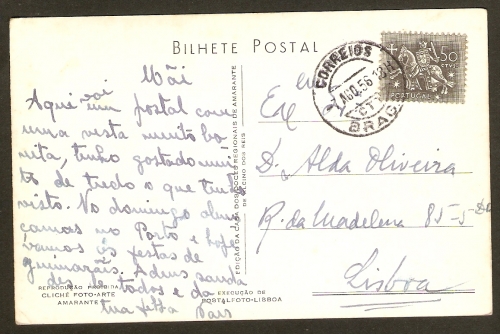 BILHETE POSTAL
Mãi
Aqui vai um postal com
uma vista muito bo
nita, tenho gostado mui
to de tudo o que tenho
visto. No domingo almo
çamos no Porto e hoje
vamos ás festas de
guimarãis. Adeus sauda
des a todos e da
tua filha
REPRODUÇÃO PROIBIDA
CLICHÉ FOTO-ARTE
AMARANTE
EDIÇÃO DA CASA DOS DOCES REGIONAIS DE AMARANTE
EXECUÇÃO DE
PORTALFOTO-LISBOA
CORREIOS
AGO. 56
CTT
BRAGA
50
CTVS
PORTUGAL
Ex
D. Alda Oliveira
R. da Madalena 85-5-
Lisboa